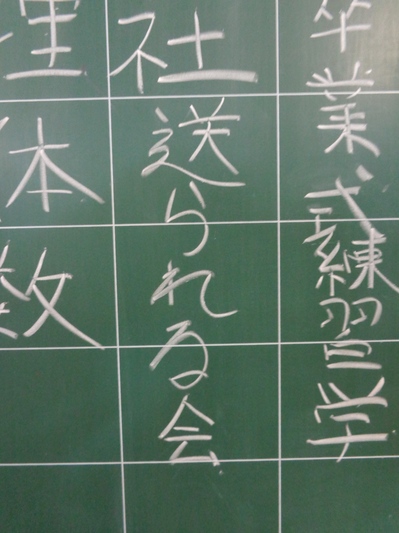 卒業式練習学
社送られる会
理体数